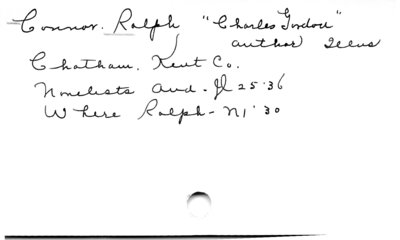 Connor. Ralph "Charles Gordon"
author
Chatham. Kent Co.
Novelists and - Jl 25 '36
Where Ralph - N 1 '30